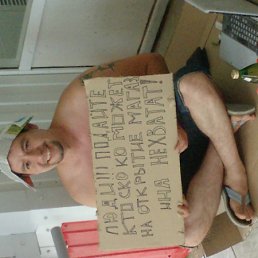 ЛЮДИ!!! ПОДАЙТЕ
КТО СКО КО МОЖЕТ
НА ОТКРЫТИЕ МАГАЗ
ИНА НЕХВАТАТ!